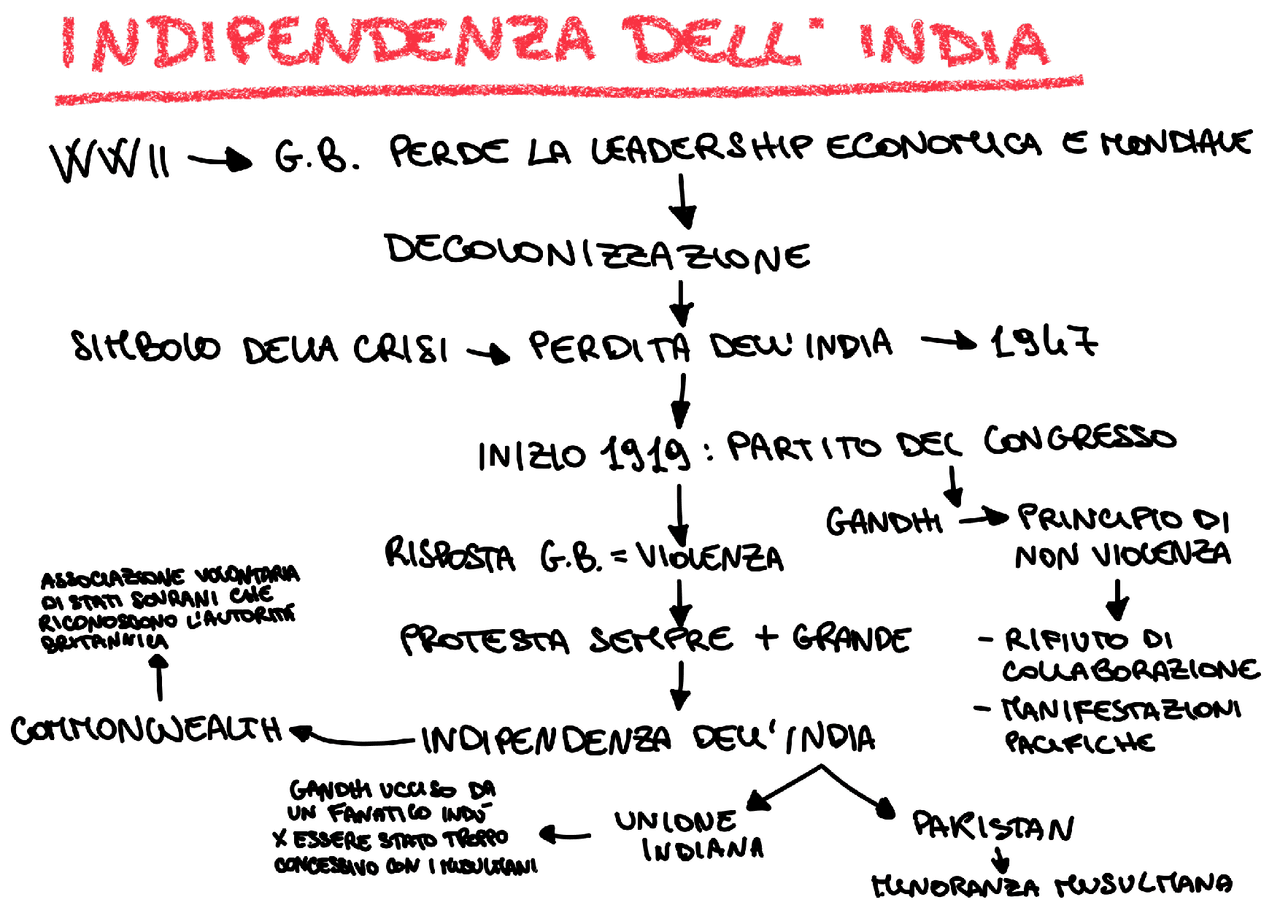 INDIPENDENZA DELL' INDIA
WWII → G.B. PERDE LA LEADERSHIP ECONOMICA E MONDIALE
DECOLONIZZAZIONE
SIMBOLO DELLA CRISI → PERDITA DELL'INDIA → 1947
INIZIO 1919: PARTITO DEL CONGRESSO
GANDHI → PRINCIPIO DI
NON VIOLENZA
- RIFIUTO DI
COLLABORAZIONE
- MANIFESTAZIONI
PACIFICHE
RISPOSTA G.B. = VIOLENZA
PROTESTA SEMPRE + GRANDE
INDIPENDENZA DELL'INDIA
COMMONWEALTH
ASSOCIAZIONE VOLONTARIA
DI STATI SOVRANI CHE
RICONOSCONO L'AUTORITÀ
BRITANNICA
UNIONE
INDIANA
GANDHI UCCISO DA
UN FANATICO INDÙ
X ESSERE STATO TROPPO
CONCESSIVO CON I MUSULMANI
PAKISTAN
MINORANZA MUSULMANA